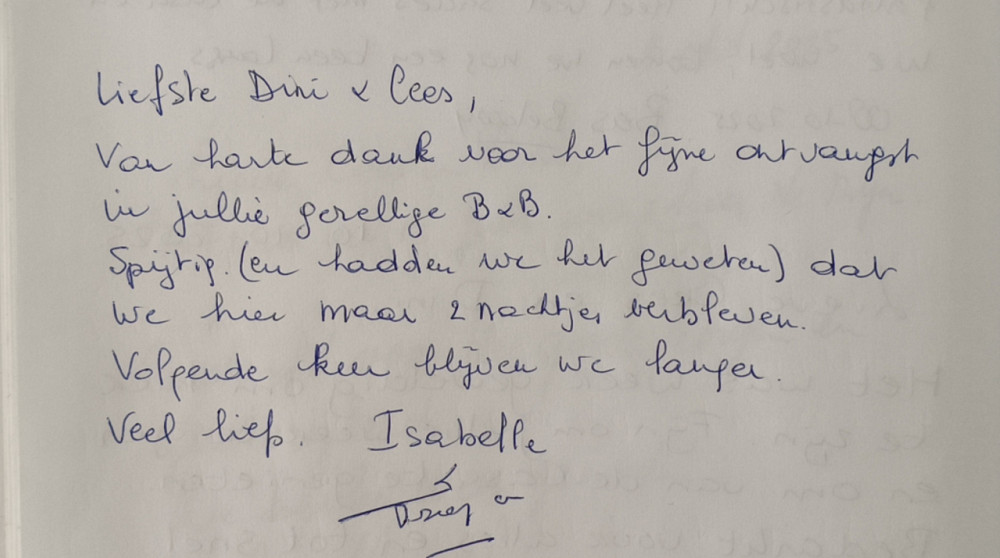 Liefste Dini & Cees,
Van harte dank voor het fijne ontvangst
in jullie gezellige B&B.
Spijtig. (en hadden we het geweten) dat
we hier maar 2 nachtjes verbleven.
Volgende keer blijven we langer.
Veel liefs. Isabelle
&